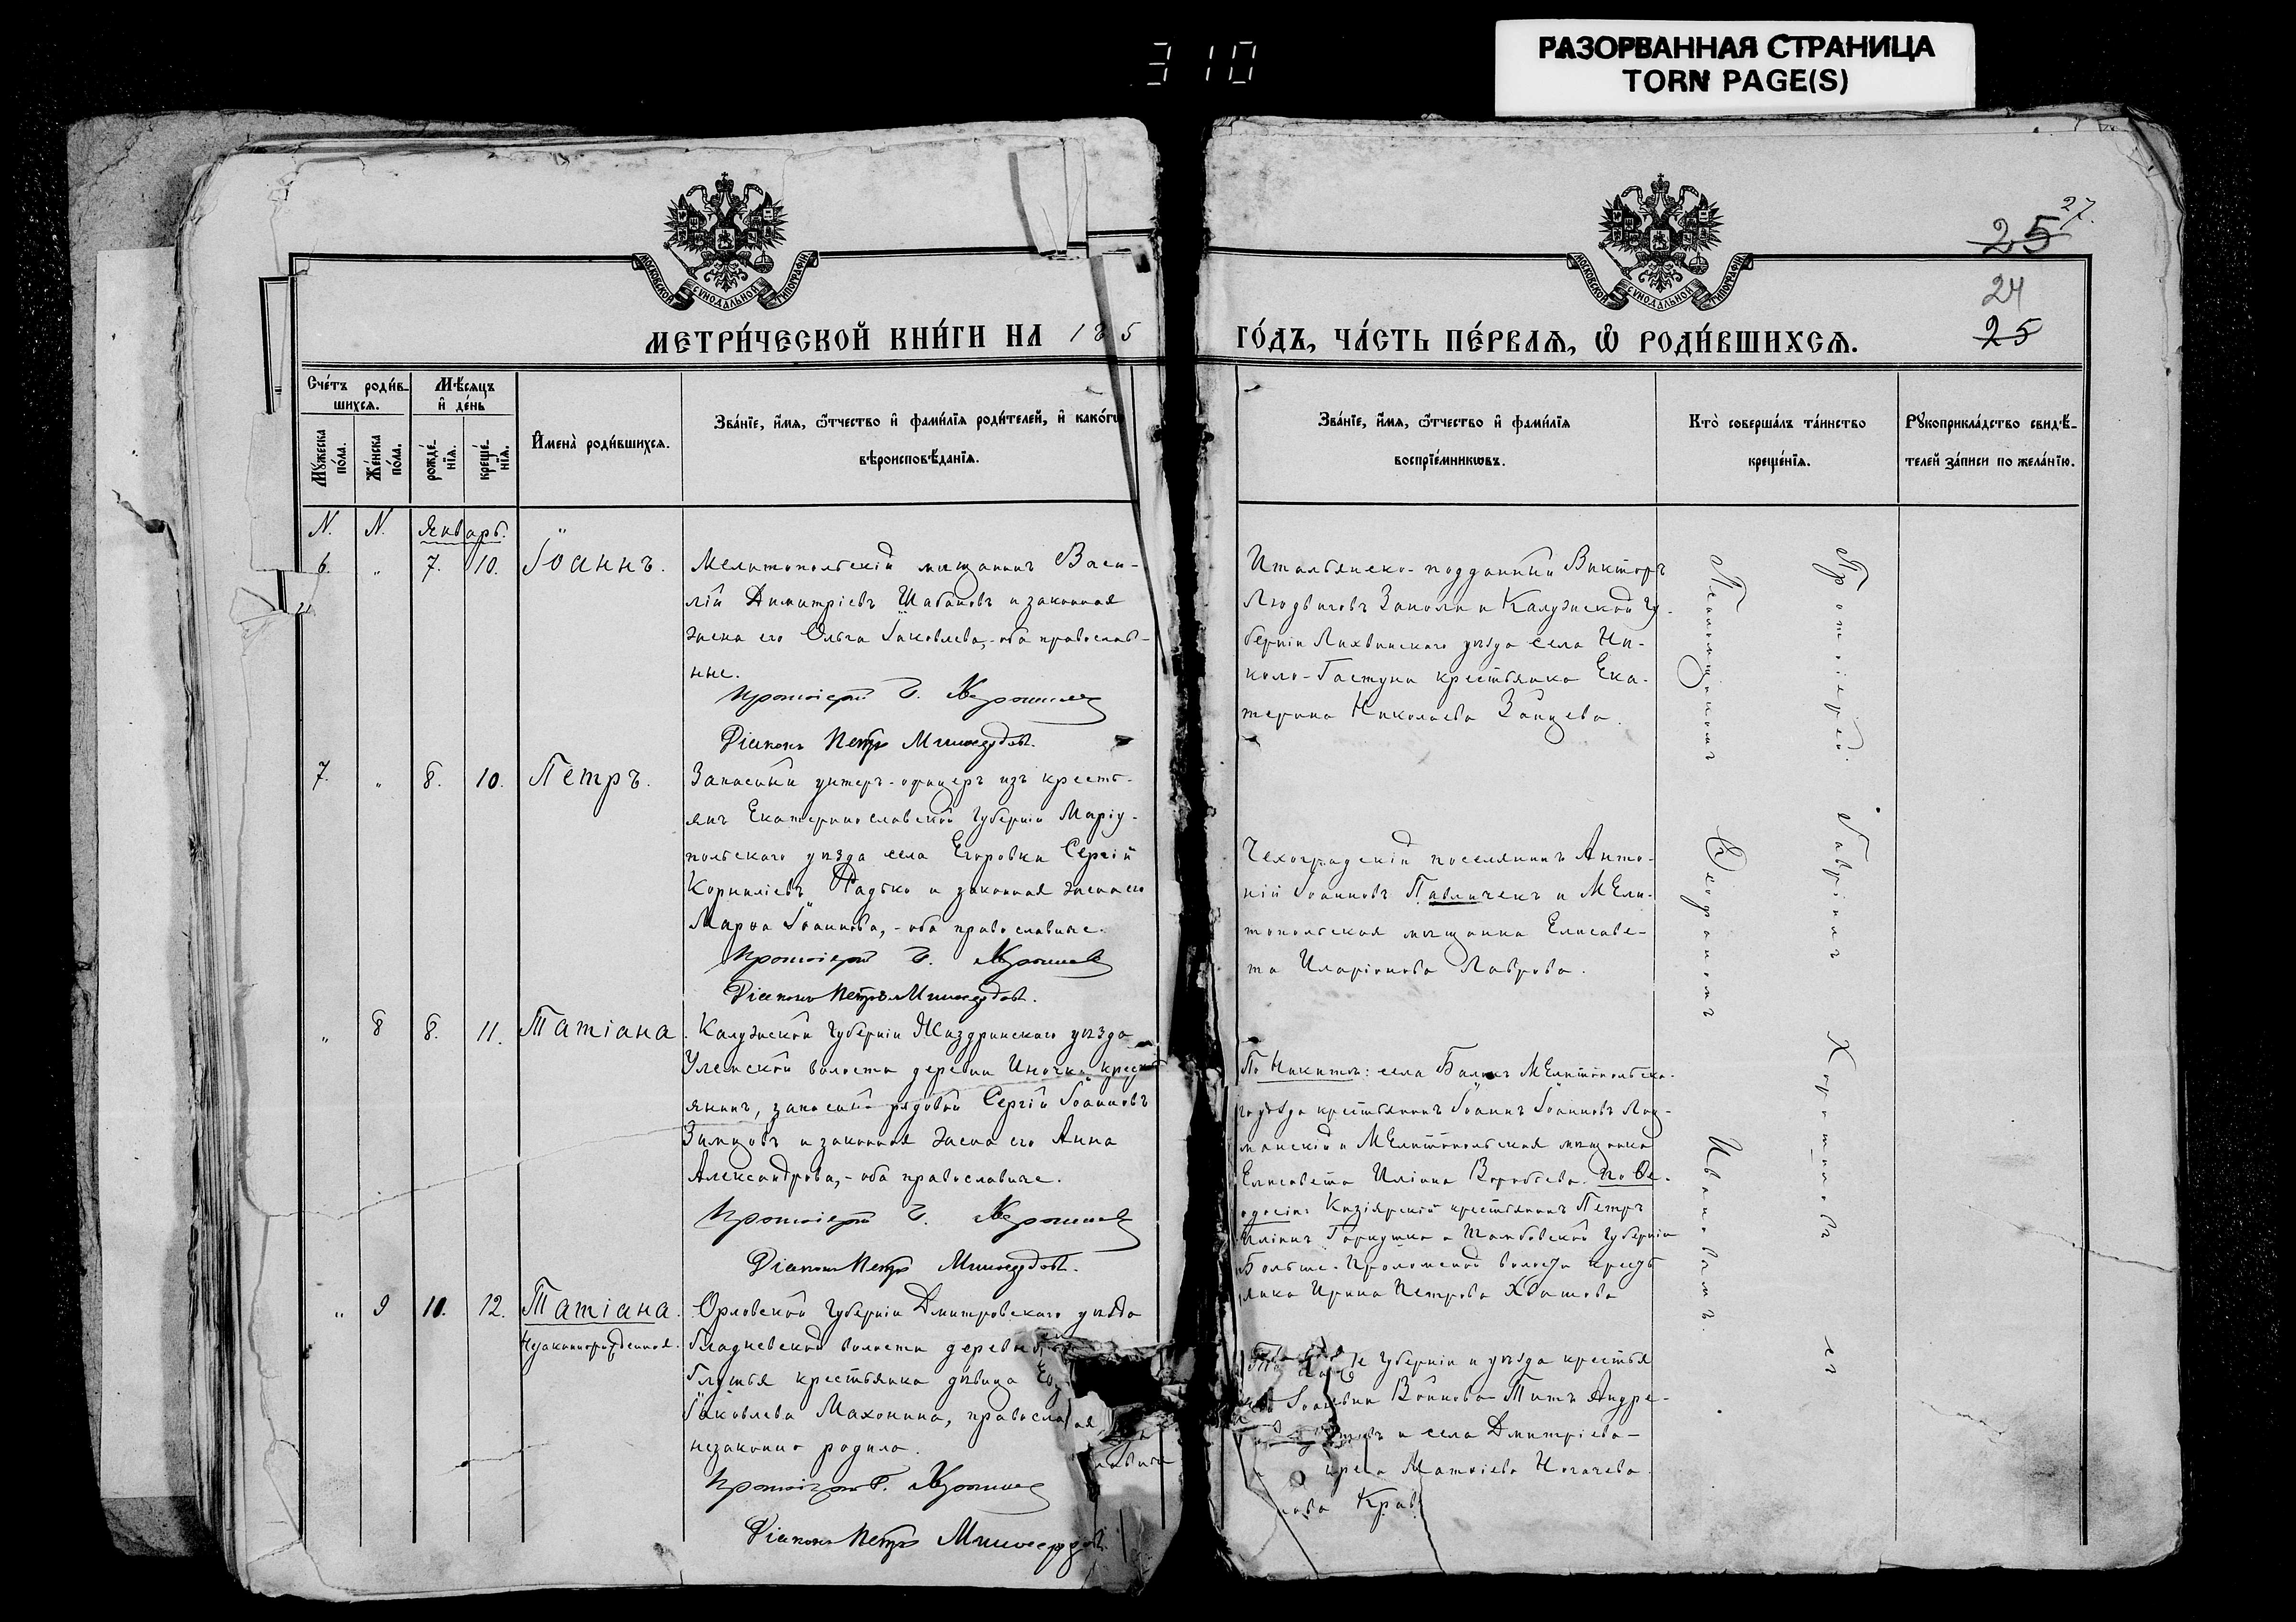 310
РАЗОРВАННАЯ СТРАНИЦА
TORN PAGE(S)
МОСКОВСКОЙ СѴНОДАЛЬНОЙ ТИПОГРАФІИ
МОСКОВСКОЙ СѴНОДАЛЬНОЙ ТИПОГРАФІИ
27.
25
24
25
МЕТРИ́ЧЕСКОЙ КНИ́ГИ НА 1 8 5
ГО́ДЪ, ЧА́СТЬ ПЕ́РВАѦ, Ѡ҆ РОДИ́ВШИХСѦ.
Сче́тъ роди́вшихсѧ.
Мꙋ́жеска по́ла.
Же́нска по́ла.
Мѣ́сѧцъ и҆ де́нь
рожде́нїѧ.
креще́нїѧ.
И҆мена̀ роди́вшихсѧ.
Зва́нїе, и҆́мѧ, ѻ҆́тчество и҆ фами́лїѧ роди́телей, и҆ како́гѡ
вѣроисповѣ́данїѧ.
Зва́нїе, и҆́мѧ, ѻ҆́тчество и҆ фами́лїѧ
воспрїе́мникѡвъ.
Кто̀ соверша́лъ та́инство
креще́нїѧ.
Рꙋкоприкла́дство свидѣ́-
телей за́писи по жела́нїю.
N. N. Январь.
6. " 7. 10. Іоаннъ.
Мелитопольскій мѣщанинъ Васи-
лій Димитріевъ Шабановъ и законная
жена его Ольга Іаковлева,- оба православ-
ные.
Протоіерей Г.
Діаконъ Петръ Милосердовъ.
Итальянско-подданный Викторъ
Людвиговъ Заноли и Калужской гу-
берніи Лихвинскаго уѣзда села Ни-
коло-Гастуни крестьянка Ека-
терина Николаева Зайцева.
7. " 8. 10. Петръ.
Запасный унтеръ-офицеръ изъ кресть-
янъ Екатеринославской губерніи Маріу-
польскаго уѣзда села Егоровки Сергій
Корниліевъ Радько и законная жена его
Марѳа Іоаннова,- оба православные.
Протоіерей Г.
Діаконъ Петръ Милосердовъ.
Чехоградскій поселянинъ Анто-
ній Іоанновъ Павличекъ и Мели-
топольская мѣщанка Елисаве-
та Иларіонова Лаврова.
" 8 8. 11. Татіана.
Калужской губерніи Жиздринскаго уѣзда
Улемской волости деревни Иночка кресть
янинъ, запасный рядовой Сергій Іоанновъ
Зимцовъ и законная жена его Анна
Александрова,- оба православные.
Протоіерей Г.
Діаконъ Петръ Милосердовъ.
По Никитѣ: села Балокъ Мелитопольска-
го уѣзда крестьянинъ Іоаннъ Іоанновъ Лоц-
манскій и Мелитопольская мѣщанка
Елисавета Иліина Воробьева. По Ѳе-
одосіи: Кизіярскій крестьянинъ Петръ
Иліинъ Горкуша и Тамбовской губерніи
Больше-Проломской волости кресть
янка Ирина Петрова Хватова
" 9 10. 12. Татіана.
Незаконнорожденная.
Орловской губерніи Дмитровскаго уѣзда
Гладневской волости деревни
Глушья крестьянка дѣвица
Іаковлева Махонина, православная,
незаконно родила.
Протоіерей Г.
Діаконъ Петръ Милосердовъ.
губерніи и уѣзда крестья
Войнова Титъ Андре-
и села Дмитріева-
Матѳіева Ногачева
Протоіерей Гавріилъ
съ
Діакономъ